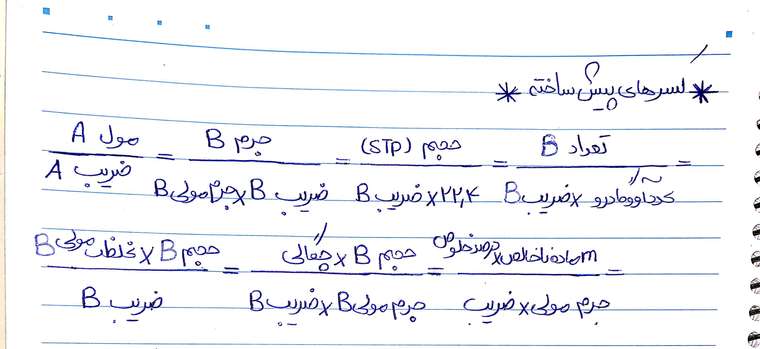 * کسرهای پیش ساخته *
مول A / ضریب A = جرم B / ضریب B × جرم مولی B = حجم (STP) / ضریب B × ۲۲,۴ = تعداد B / عدد آووگادرو × ضریب B =
حجم B × غلظت مولی B / ضریب B = حجم B × چگالی / جرم مولی B × ضریب B = m ماده ناخالص × درصد خلوص / جرم مولی × ضریب =